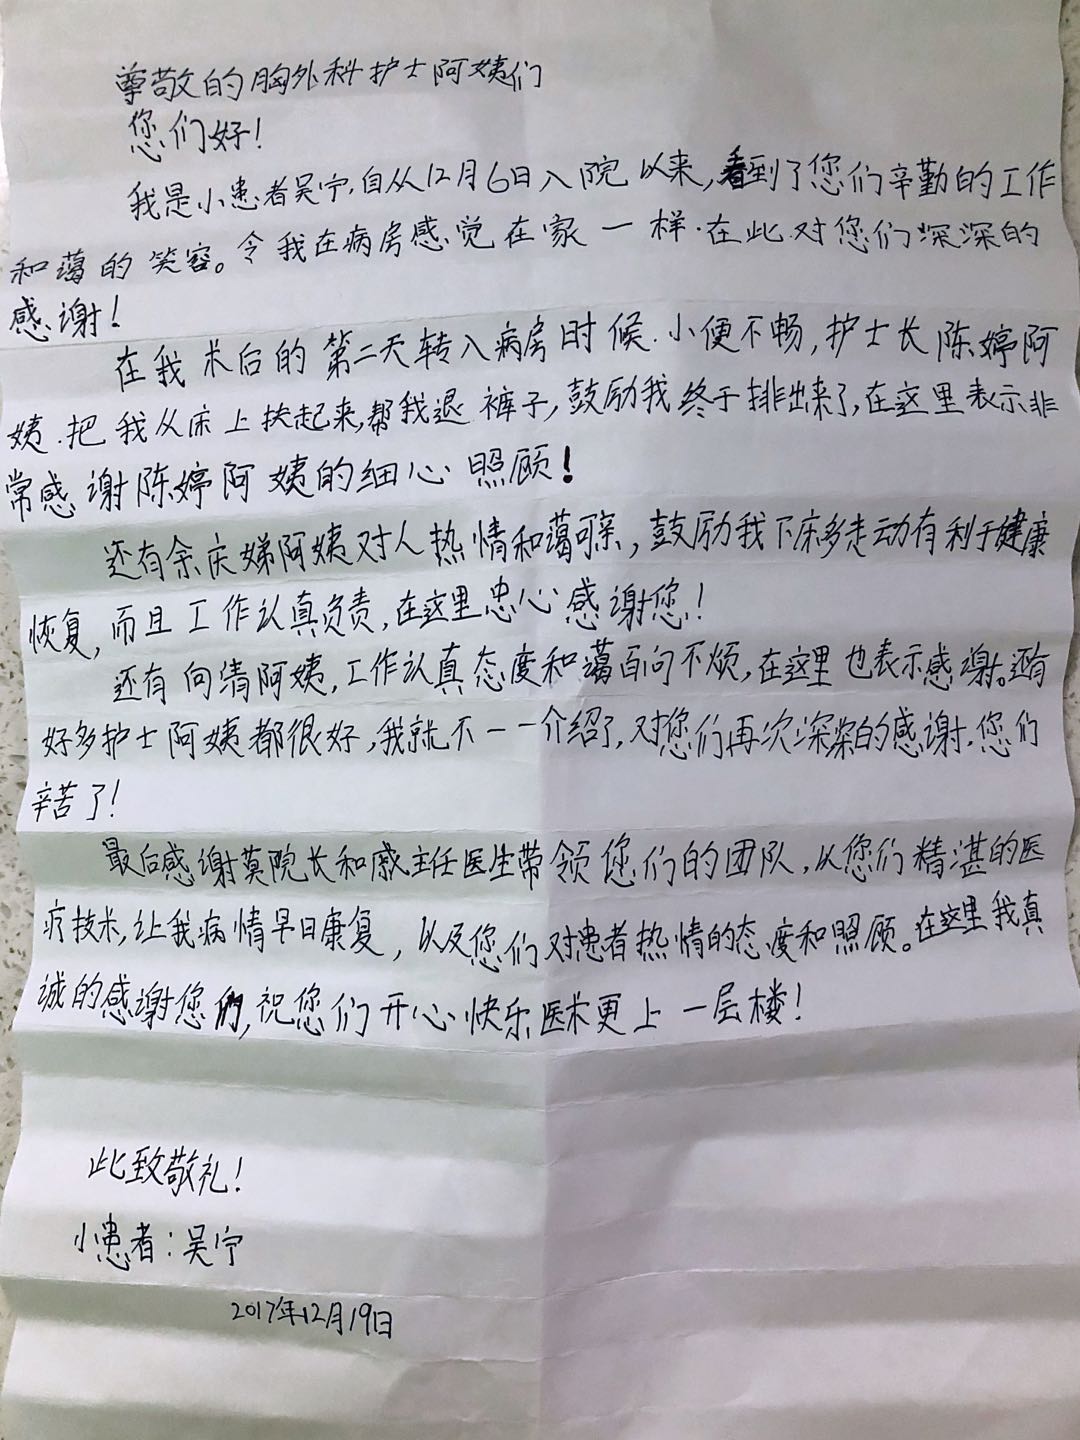 尊敬的胸外科护士阿姨们
您们好！
我是小患者吴宁，自从12月6日入院以来，看到了您们辛勤的工作
和蔼的笑容。令我在病房感觉在家一样.在此对您们深深的
感谢！
在我术后的第二天转入病房时候.小便不畅，护士长陈婷阿
姨.把我从床上扶起来，帮我退裤子，鼓励我终于排出来了，在这里表示非
常感谢陈婷阿姨的细心照顾！
还有余庆娣阿姨对人热情和蔼可亲，鼓励我下床多走动有利于健康
恢复，而且工作认真负责，在这里忠心感谢您！
还有向清阿姨，工作认真态度和蔼百问不烦，在这里也表示感谢。还有
好多护士阿姨都很好，我就不一一介绍了，对您们再次深深的感谢.您们
辛苦了！
最后感谢莫院长和戚主任医生带领您们的团队，以您们精湛的医
疗技术，让我病情早日康复，以及您们对患者热情的态度和照顾。在这里我真
诚的感谢您们，祝您们开心快乐医术更上一层楼！
此致敬礼！
小患者：吴宁
2017年12月19日